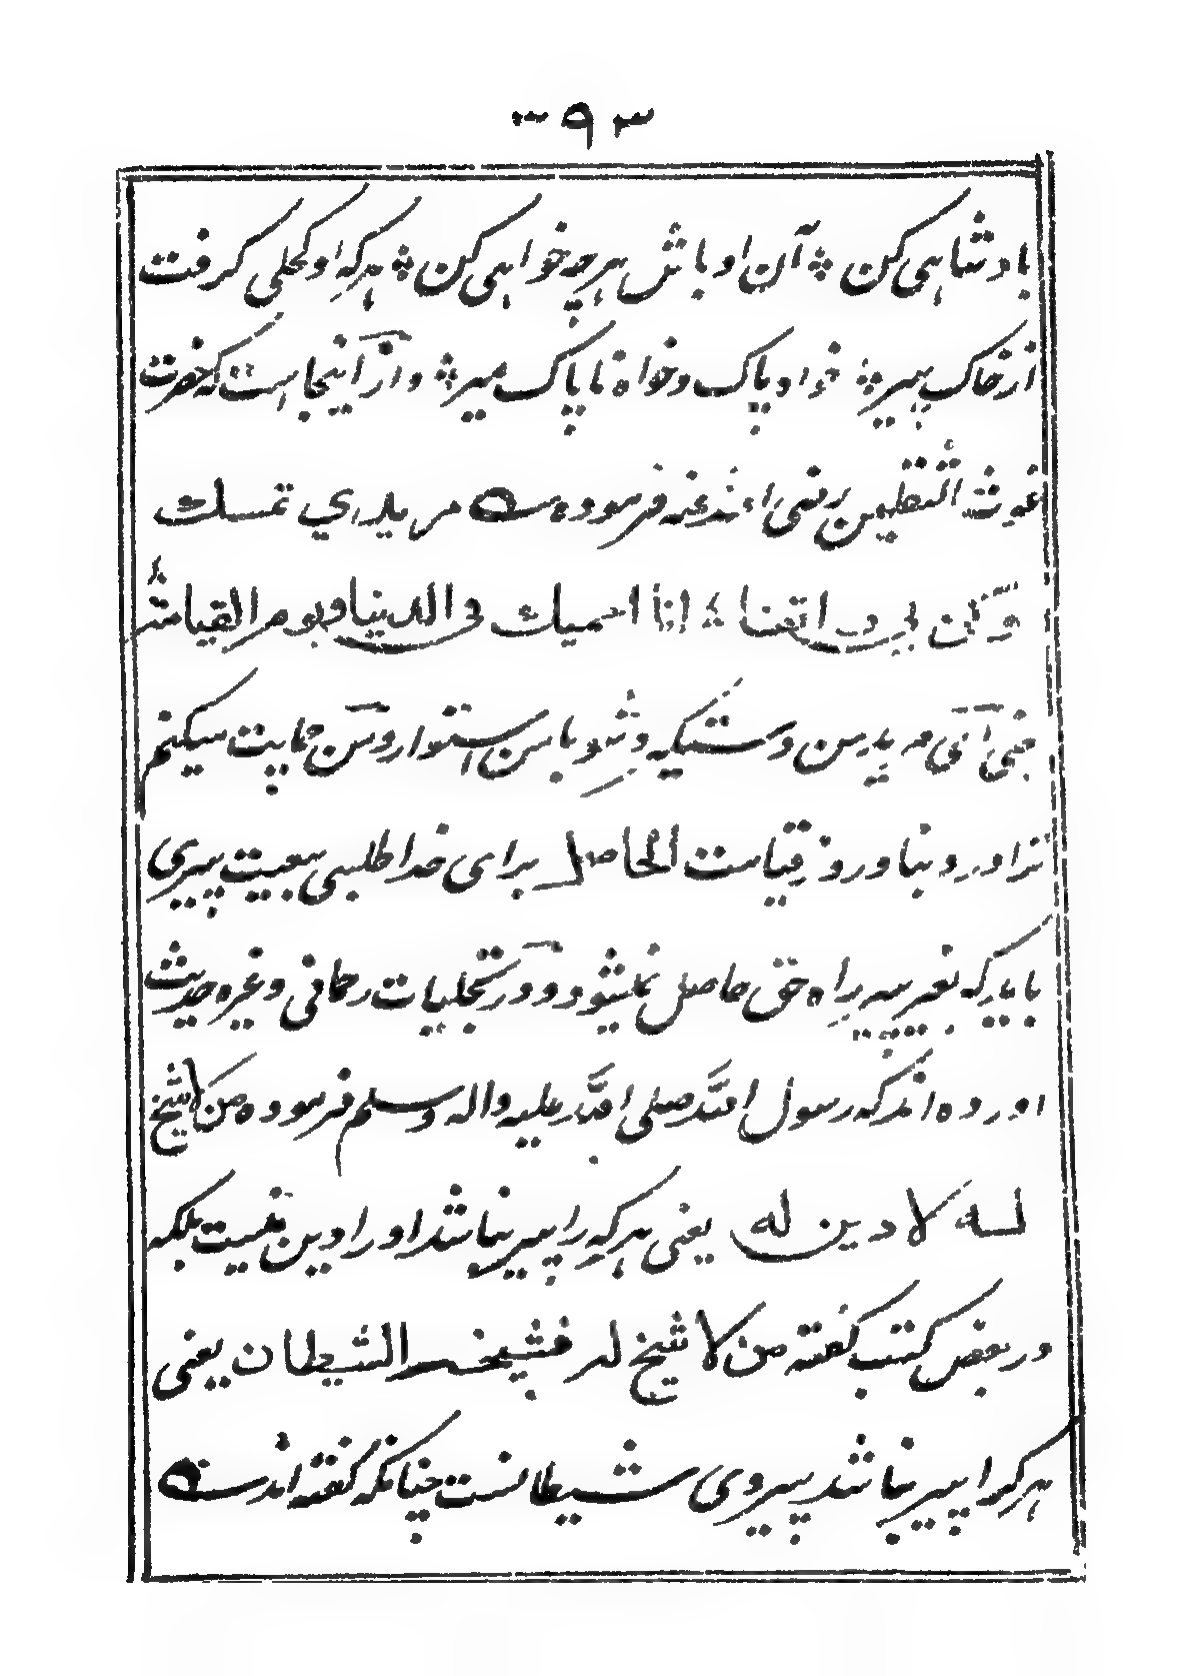 ۹۳
بادشاهی کن ؞ آن او باش هر چه خواهی کن ؞ هر که او کحلی گرفت
از خاک پیر ؞ خواه پاک و خواه ناپاک میر ؞ و از اینجا است که حضرت
غوث الثقلین رضی الله عنه فرموده مریدي تمسك
وکن بی واثقنا ؞ انا احمیك فی الدنیا و یوم القیامة
یعنی ای مرید من و شو با من استوار و من حمایت میکنم
ترا در دنیا و روز قیامت الحاصل برای خدا طلبی بیعت پیری
باید که بغیر پیر راه حق حاصل نمیشود و در تجلیات رحمانی و غیره حدیث
اورده اند که رسول الله صلی الله علیه واله وسلم فرموده من لا شیخ
له لا دین له یعنی هر که را پیر نباشد او را دین نیست بلکه
در بعض کتب گفته من لا شیخ له فشیخه الشیطان یعنی
هر کرا پیر نباشد پیروی شیطانست چنانکه گفته اند